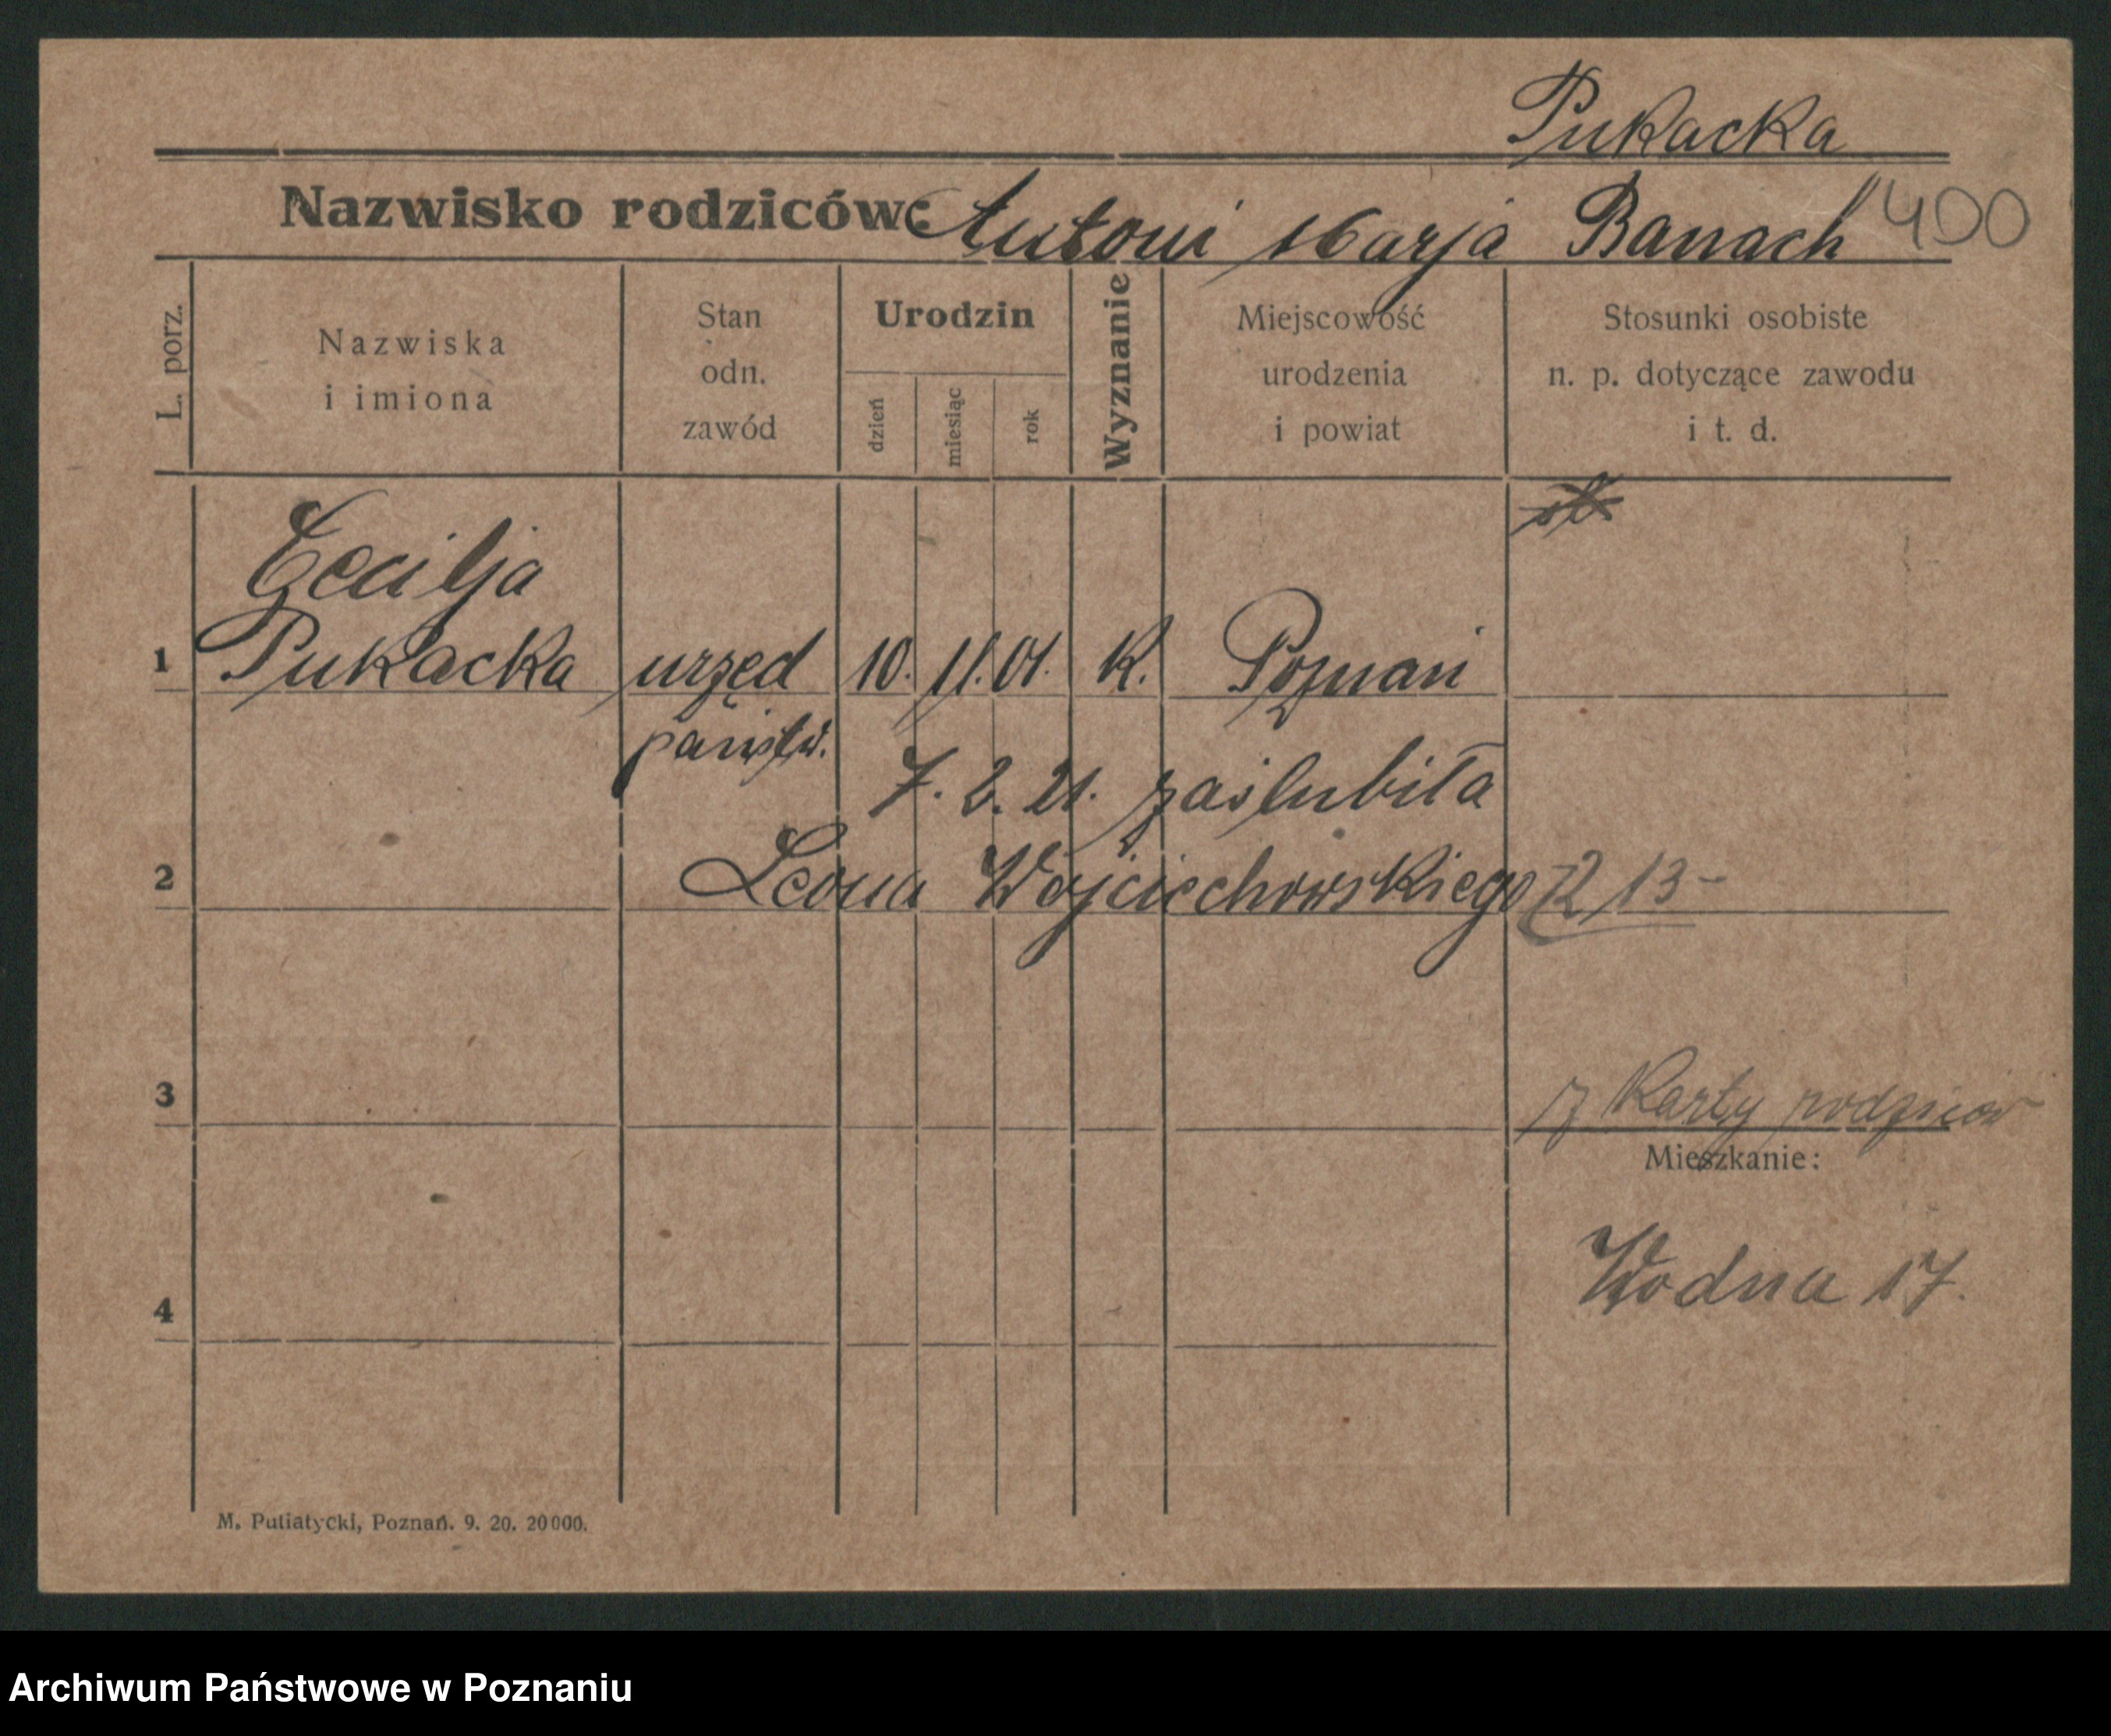 Pukacka
Nazwisko rodziców: Antoni Marja Banach 400
L. porz.
Nazwiska
i imiona
Stan
odn.
zawód
Urodzin
dzień
miesiąc
rok
Wyznanie
Miejscowość
urodzenia
i powiat
Stosunki osobiste
n. p. dotyczące zawodu
i t. d.
Cecilja
1 Pukacka urzęd 10. 11. 01. K. Poznań
państw.
7. 2. 21. zaślubiła
2 Leona Wojciechowskiego 13-
3 z Karty rodziców
Mieszkanie:
Wodna 17.
4
M. Putiatycki, Poznań. 9. 20. 20000.
Archiwum Państwowe w Poznaniu